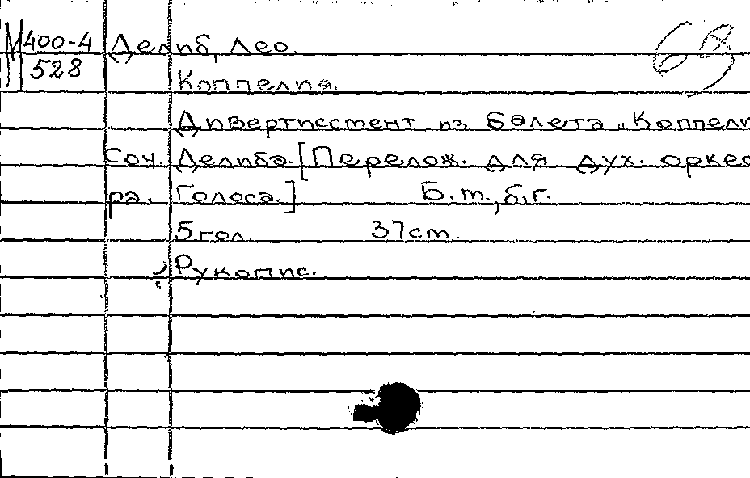 М 400-4 Делиб, Лео.
528
Коппелия.
Дивертисмент из балета „Коппели
Соч. Делиба. [Перелож. для дух. оркес
ра. Голоса.] Б.м., б.г.
5 гол. 37 см.
Рукопис.